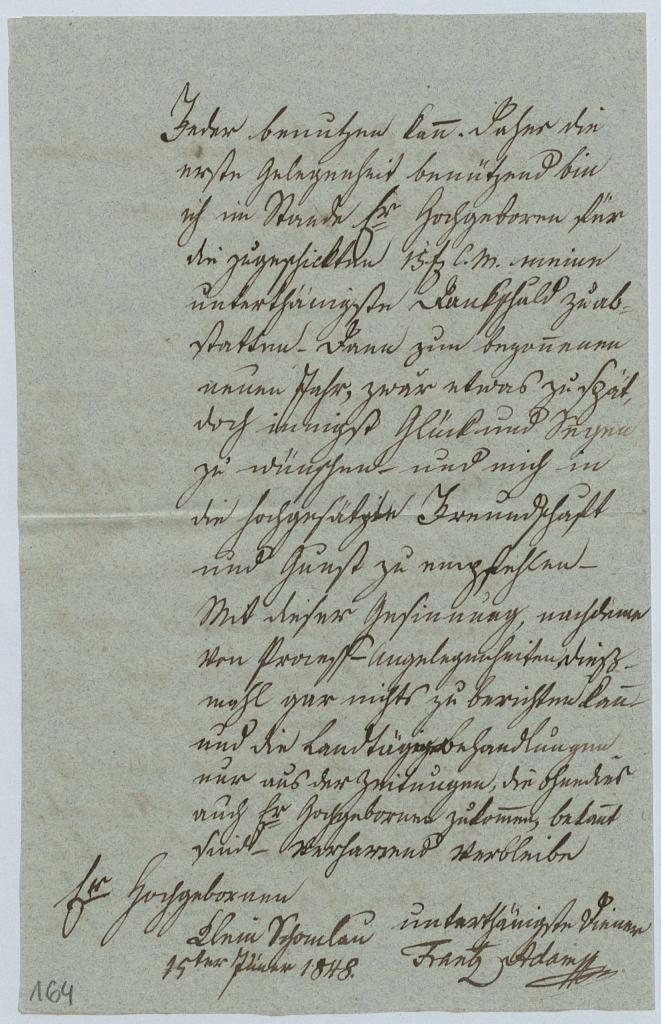 Jeder benutzen kann. Daher die
erste Gelegenheit benützend bin
ich im Stande Er Hochgeboren für
die zugeschickten 15 f C.M. meine
unterthänigste Dankschuld zu ab-
statten – Dann zum begonnenen
neuen Jahr, zwar etwas zu spät,
doch innigst Glück und Segen
zu wünschen – und mich in
die hochgesätzte Freundschaft
und Gunst zu empfehlen –
Mit dieser Gesinnung, nachdeme
von Process-Angelegenheiten dieß-
mahl gar nichts zu berichten kann
und die Landtägsbehandlungen
nur aus der Zeitungen, die ohnedies
auch Er Hochgebornen zukommen, bekannt
sind – verharrend verbleibe
Er Hochgebornen
Klein Schomlau unterthänigste Diener
15ter Jäner 1848. Frantz Adam
164